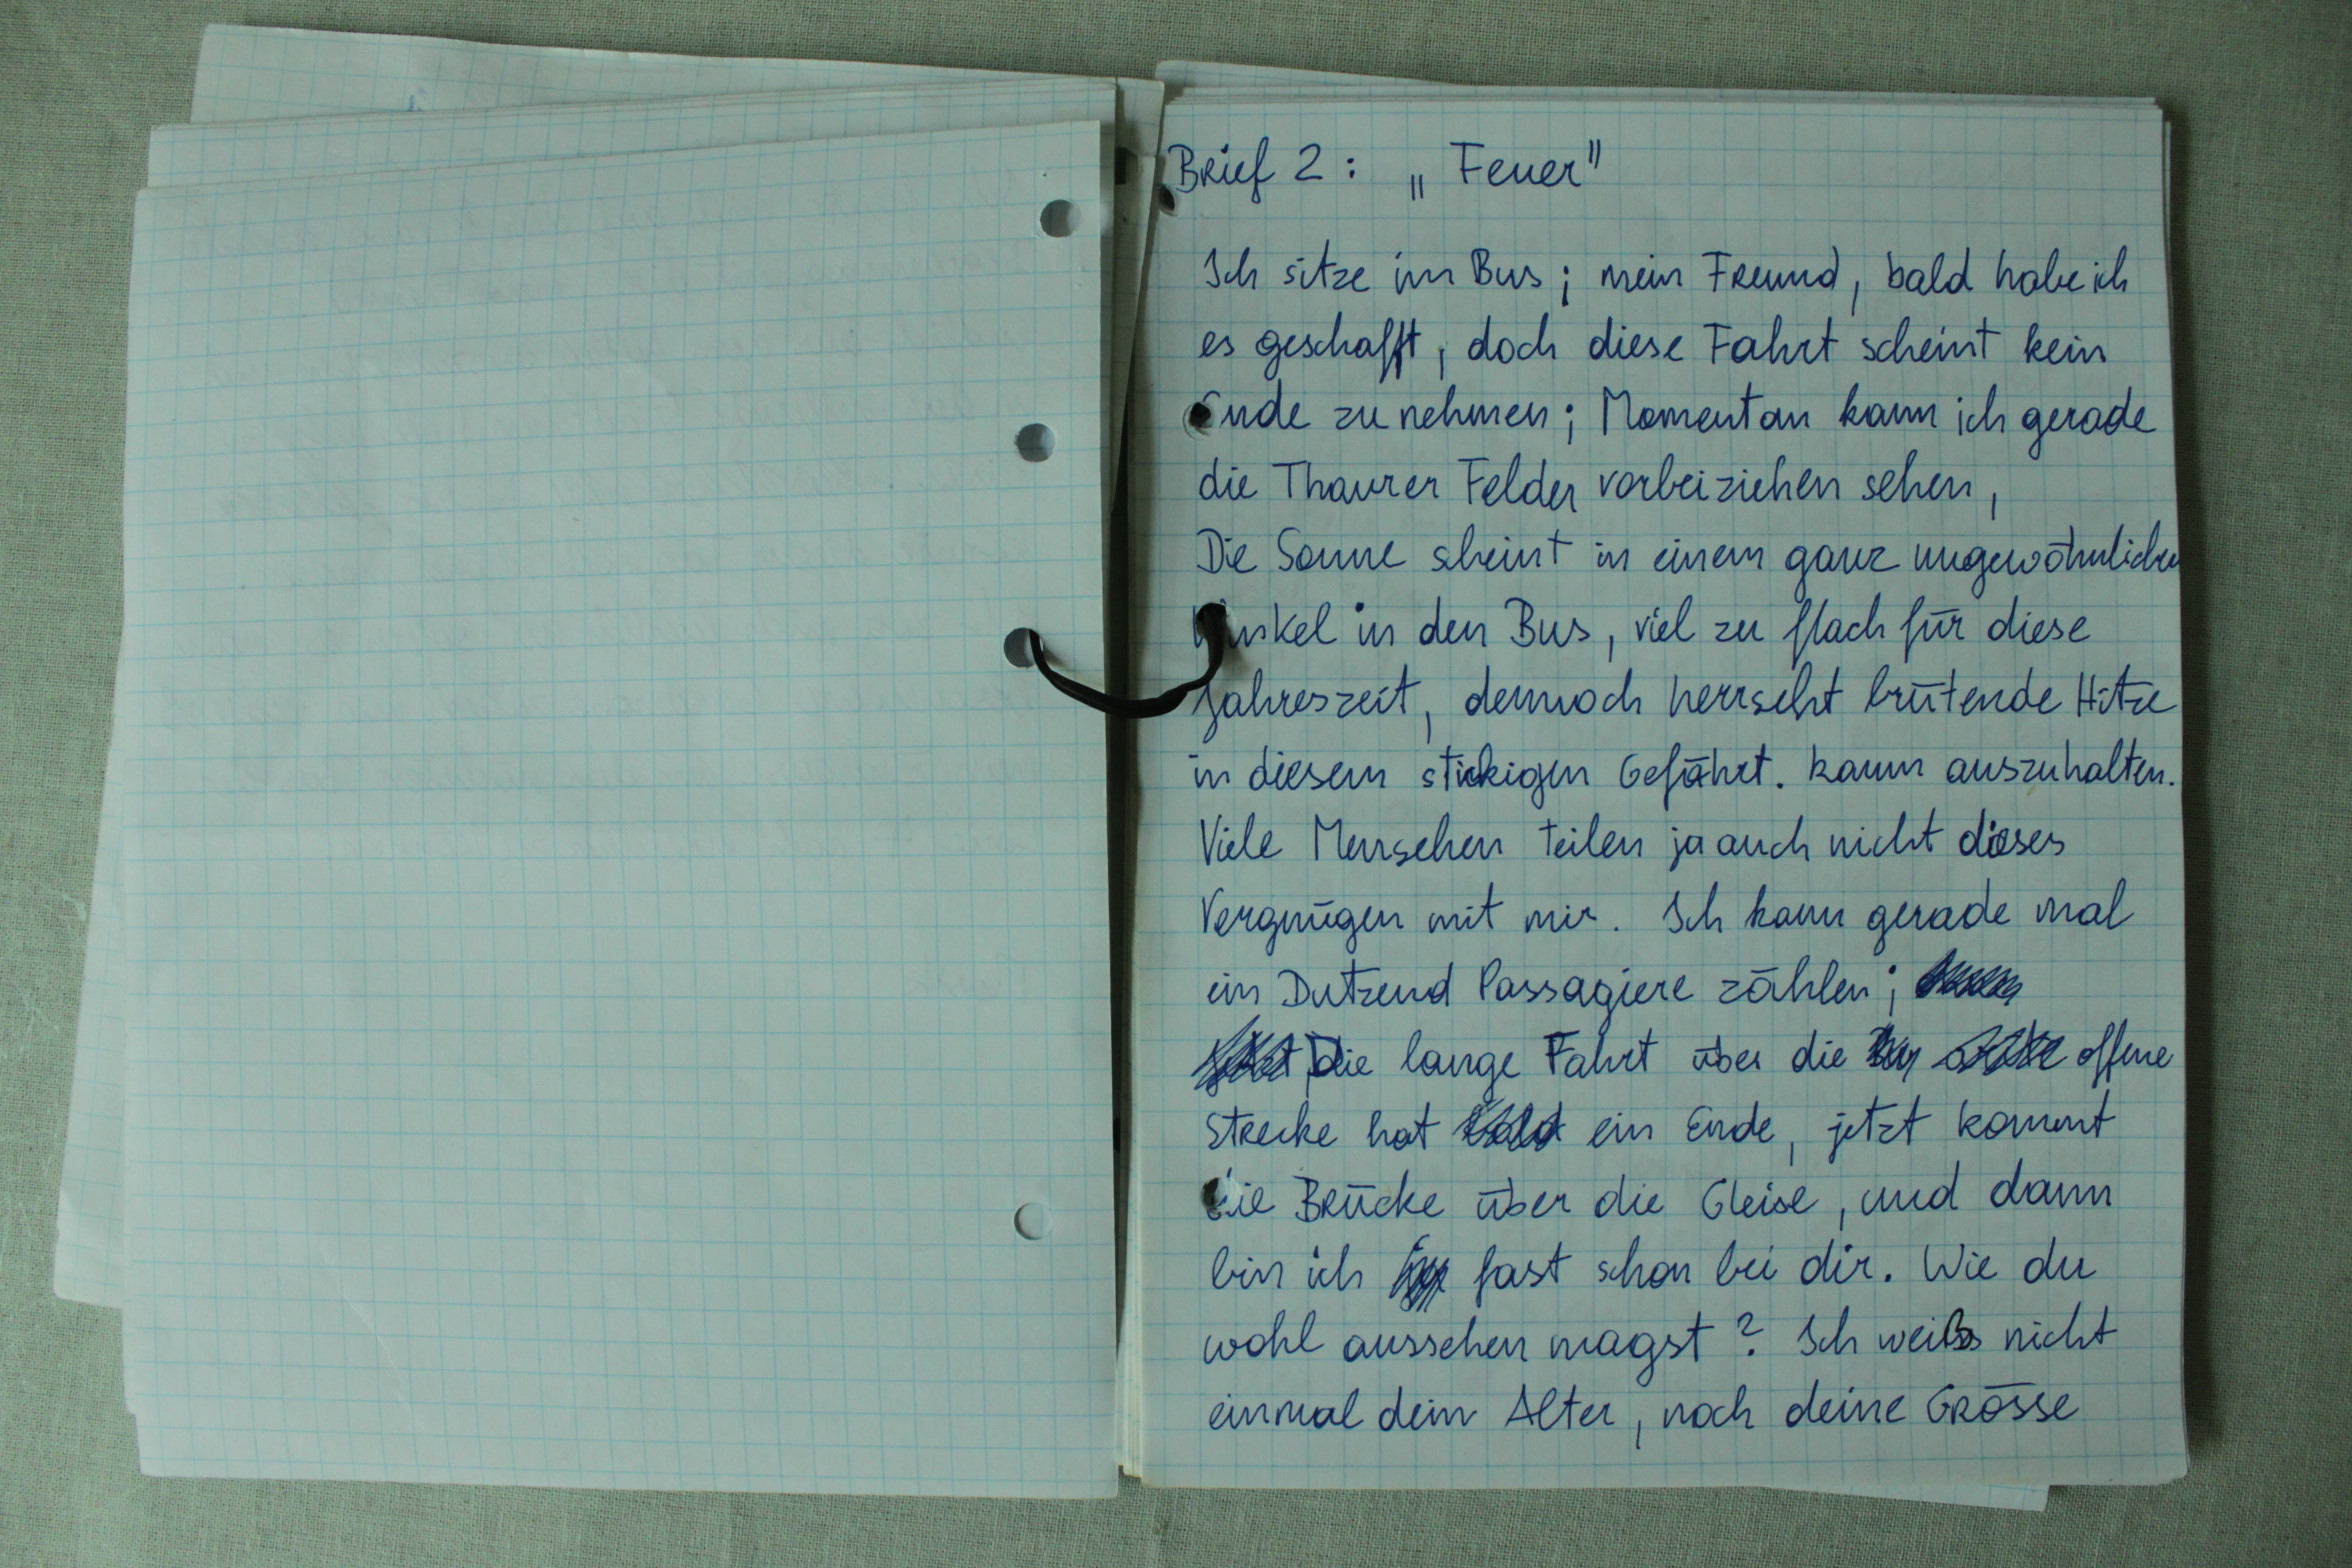 Brief 2: „Feuer"
Ich sitze im Bus; mein Freund, bald habe ich
es geschafft, doch diese Fahrt scheint kein
Ende zu nehmen; Momentan kann ich gerade
die Thaurer Felder vorbeiziehen sehen,
Die Sonne scheint in einem ganz ungewöhnlichen
Winkel in den Bus, viel zu flach für diese
Jahreszeit, dennoch herrscht brütende Hitze
in diesem stickigen Gefährt. kaum auszuhalten.
Viele Menschen teilen ja auch nicht dieses
Vergnügen mit mir. Ich kann gerade mal
ein Dutzend Passagiere zählen;
Die lange Fahrt über die offene
Strecke hat bald ein Ende, jetzt kommt
die Brücke über die Gleise, und dann
bin ich fast schon bei dir. Wie du
wohl aussehen magst? Ich weiß nicht
einmal dein Alter, noch deine Grösse